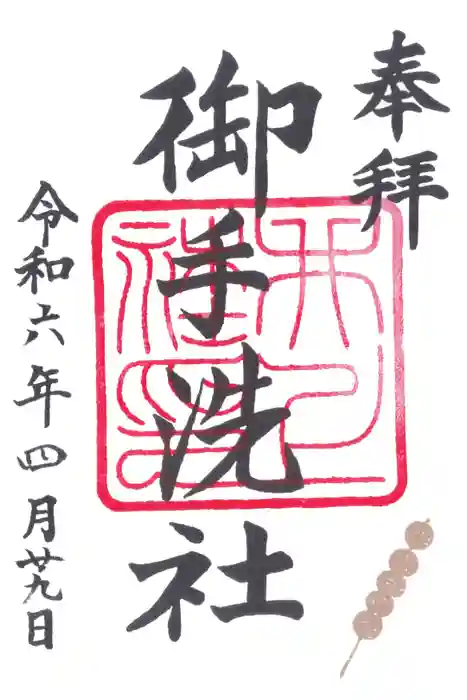 奉拝
御手洗社
令和六年四月廿九日